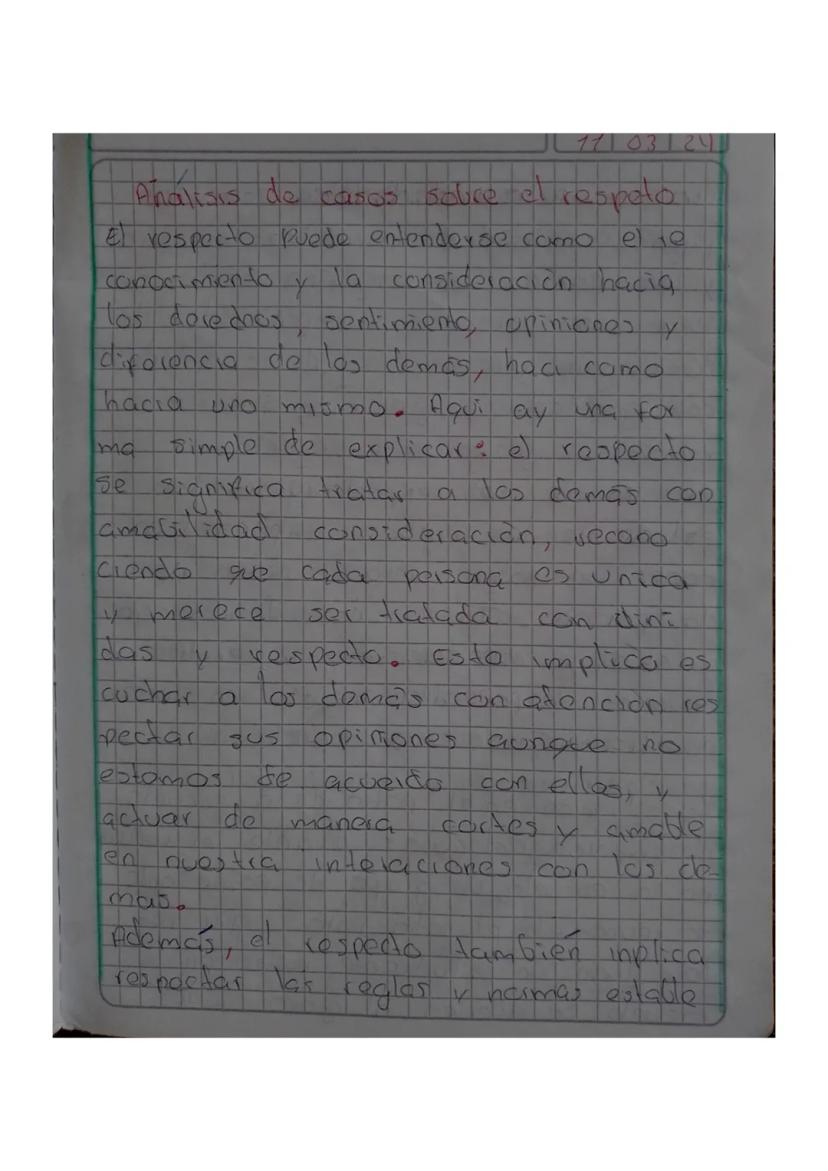 11 03 24
Análisis de casos sobre el respeto
El respecto puede entenderse como el re
conocimiento y la consideración hacia
los derednos, sentimiento, opiniones y
diferencia de los demás, haci como
hacia uno mismo. Aqui ay una for
ma simple de explicar: el respecto
se significa tratar a los demás con
amabilidad consideración, recono
ciendo que cada persona es unica
y merece ser tratada con dini
das y respecto. Esto implica es
cuchar a los demás con atención res
pectar sus opiniones aunque no
estamos de acuerdo con ellas, y
actuar de manera cortes y amable
en nuestra interaciones con los de
mas.
Además, el respecto también inplica
respectar las reglas y normas estable